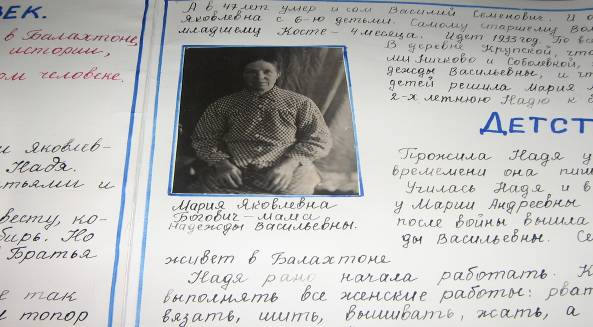 ЕК.
в Балахтоне,
истории,
ом человеке.
и Яковлев-
Надя.
тьями и
весту, ко-
бирь. Но
Братья
так
и топор
А в 47 лет умер и сам Василий Семенович. И о
Яковлевна с 6-ю детьми. Самому старшему Вол
младшему Косте - 4 месяца. Идет 1933 год. По вс
В деревне Крупской, что
ми Яшково и Соболевкой,
дежды Васильевны, и чт
детей решила Мария
2-х летнюю Надю к
Мария Яковлевна
Богович - мама
Надежды Васильевны.
ДЕТСТ
Прожила Надя у
времени она пиш
Училась Надя и в
у Марии Андреевны
после войны вышла
ды Васильевны. Се
живет в Балахтоне
Надя рано начала работать. К
выполнять все женские работы: рват
вязать, шить, вышивать, жать, а